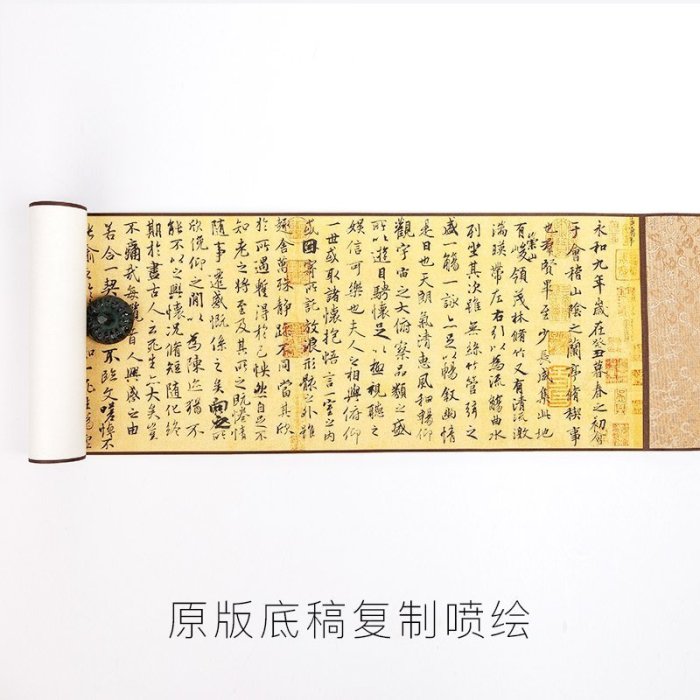 永和九年歲在癸丑暮春之初會
于會稽山陰之蘭亭脩稧事
也群賢畢至少長咸集此地
崇山
有峻領茂林脩竹又有清流激
湍暎帶左右引以為流觴曲水
列坐其次雖無絲竹管弦之
盛一觴一詠亦足以暢敘幽情
是日也天朗氣清惠風和暢仰
觀宇宙之大俯察品類之盛
所以遊目騁懷足以極視聽之
娛信可樂也夫人之相與俯仰
一世或取諸懷抱悟言一室之內
或因寄所託放浪形骸之外雖
趣舍萬殊靜躁不同當其欣
於所遇暫得於己怏然自足不
知老之將至及其所之既惓情
隨事遷感慨係之矣向之所
欣俛仰之閒以為陳迹猶不
能不以之興懷況脩短隨化終
期於盡古人云死生亦大矣豈
不痛哉每攬昔人興感之由
若合一契不臨文嗟悼不
喻之知一死生為虛
原版底稿复制喷绘